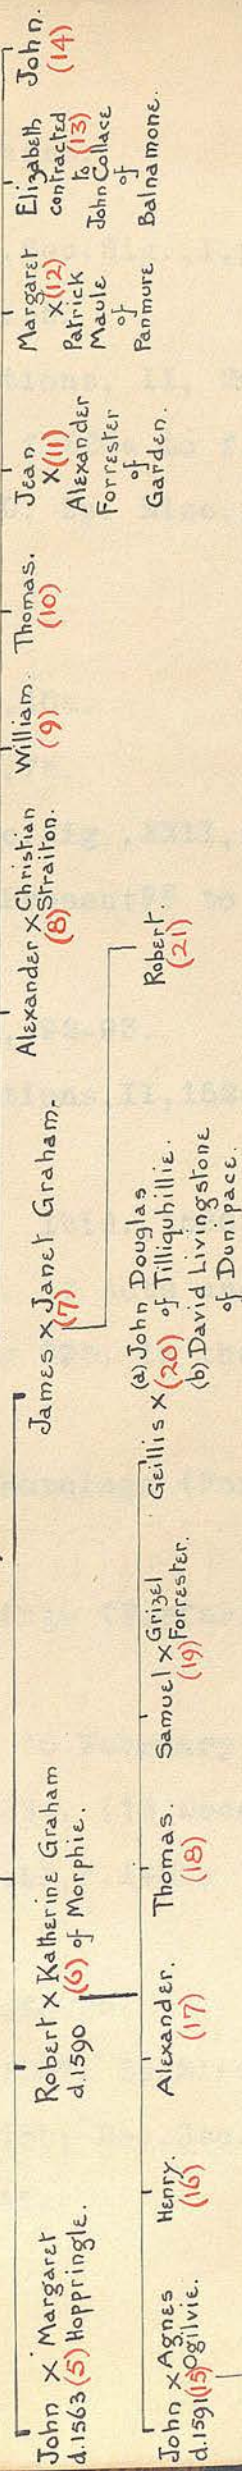 John X Margaret
d.1563 (5) Hoppringle.
Robert X Katherine Graham
d.1590 (6) of Morphie.
James X Janet Graham.
(7)
Alexander X Christian
(8) Straiton.
William.
(9)
Thomas.
(10)
Jean
X (11)
Alexander
Forrester
of
Garden.
Margaret
X (12)
Patrick
Maule
of
Panmure
Elizabeth
contracted
(13)
to
John Collace
of
Balnamone.
John.
(14)
John X Agnes
d.1591 (15) Ogilvie.
Henry.
(16)
Alexander.
(17)
Thomas.
(18)
Samuel X Grizel
(19) Forrester.
Geillis X (a) John Douglas
(20) of Tilliquhillie.
(b) David Livingstone
of Dunipace.
Robert.
(21)